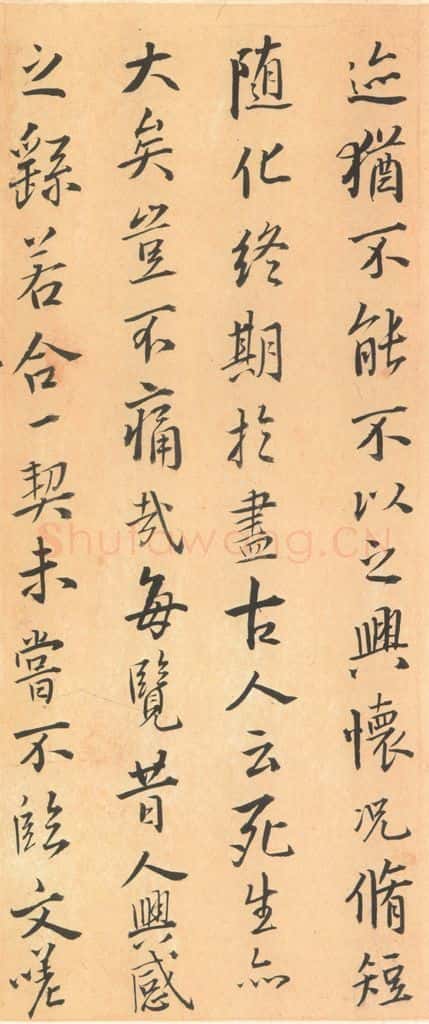 迹猶不能不以之興懷況脩短
隨化終期於盡古人云死生亦
大矣豈不痛哉每覽昔人興感
之繇若合一契未嘗不臨文嗟
Shufawang.CN